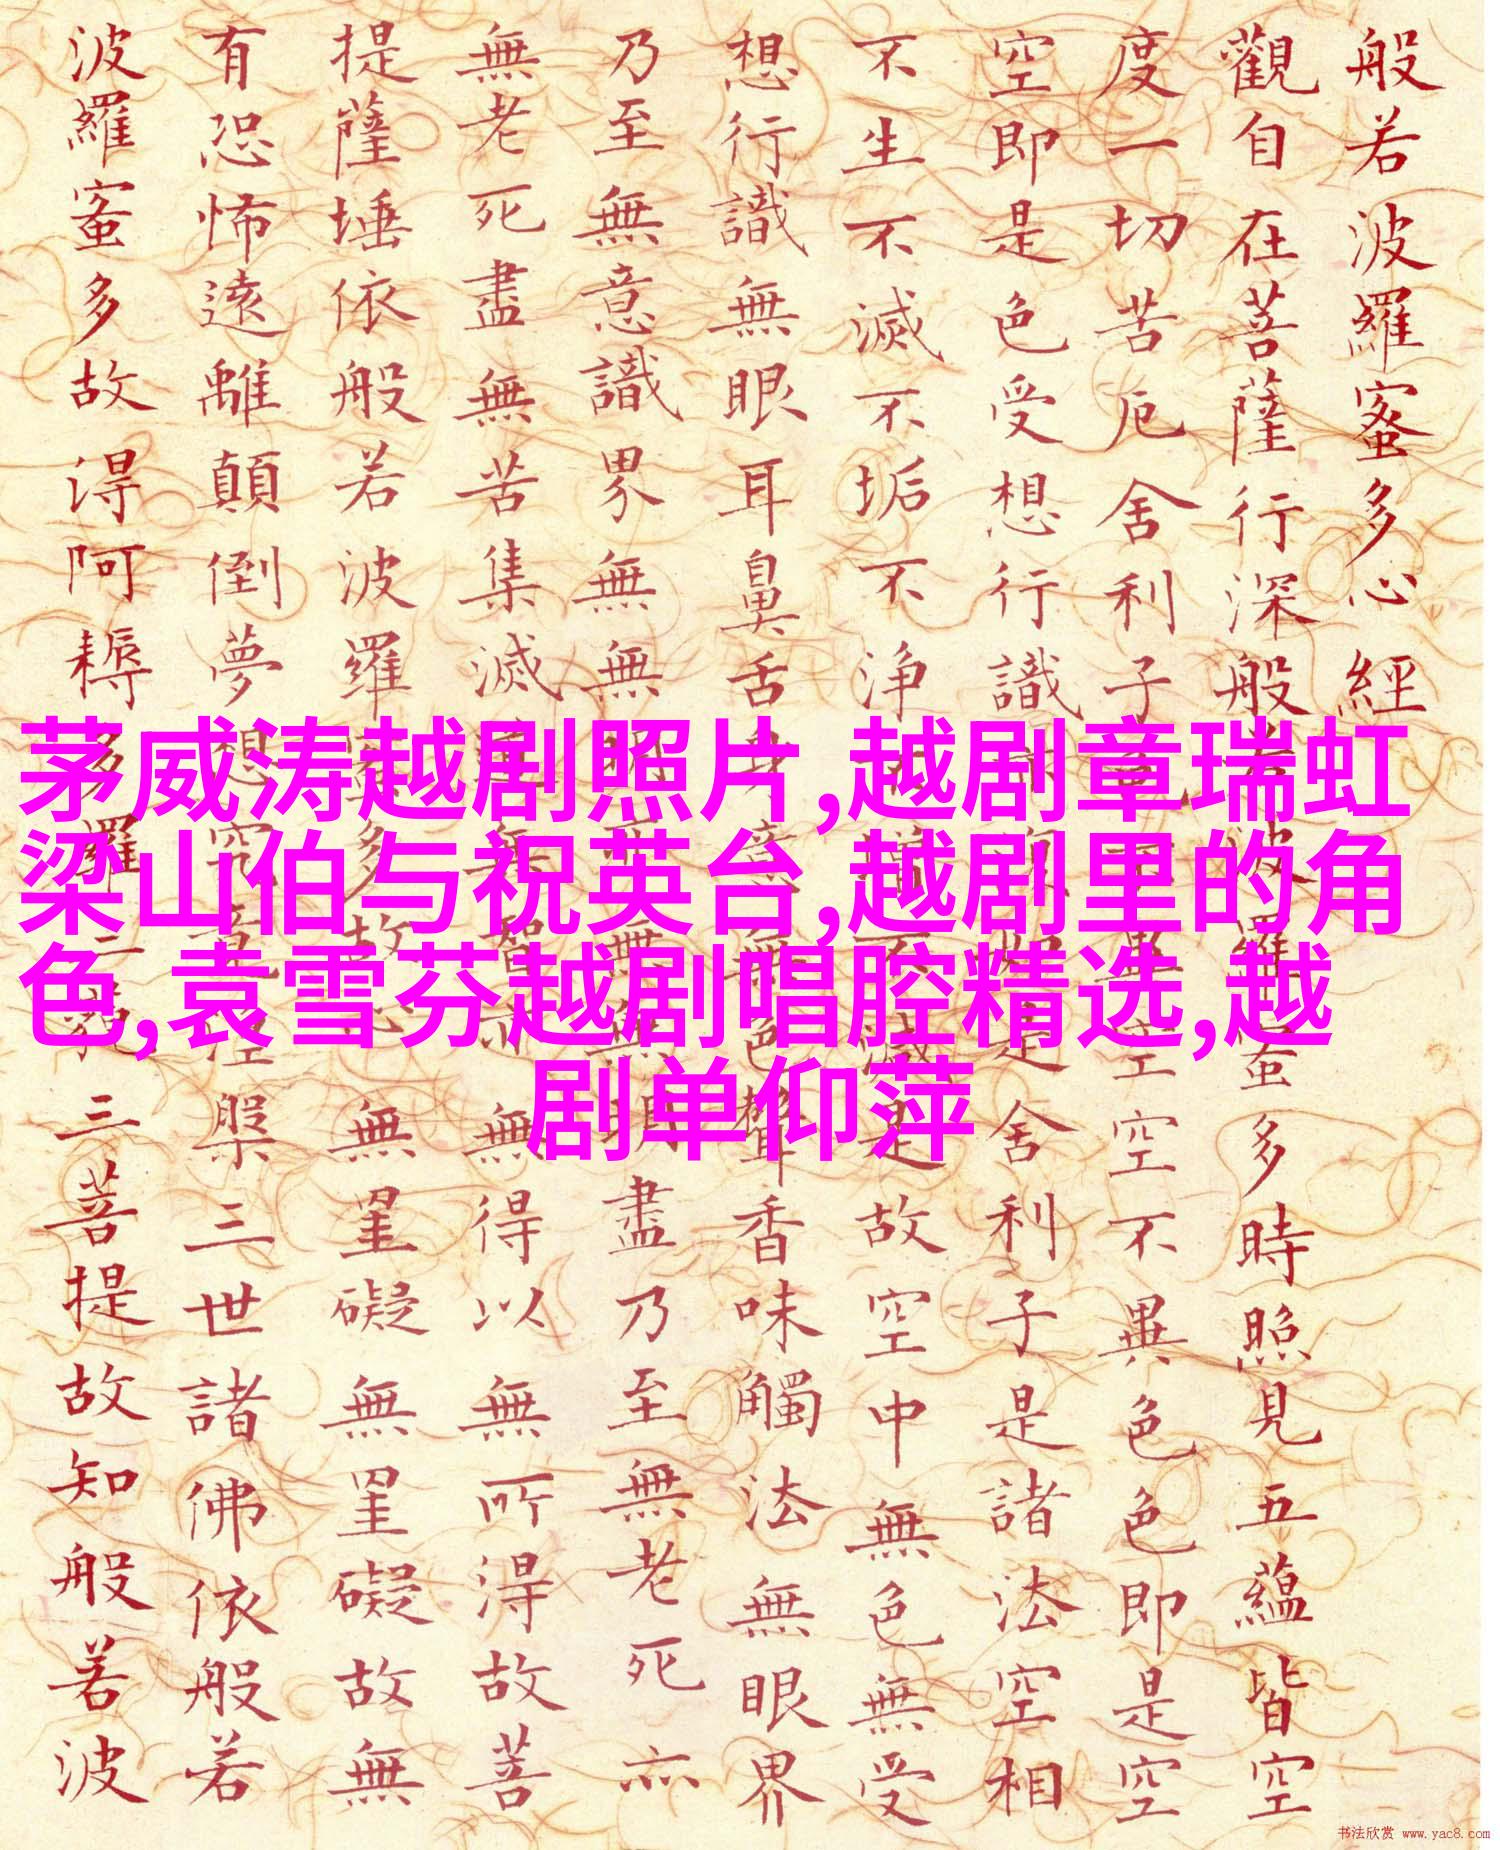 般若波羅蜜多心經
觀自在菩薩行深般若波羅蜜多時照見五蘊皆空
度一切苦厄舍利子色不異空空不異色色即是空
空即是色受想行識亦復如是舍利子是諸法空相
不生不滅不垢不浄不增不減是故空中無色無受
想行識無眼耳鼻舌身意無色聲香味觸法無眼界
乃至無意識界無無明亦無無明盡乃至無老死亦
無老死盡無苦集滅道無智亦無得以無所得故菩
提薩埵依般若波羅蜜多故心無罣礙無罣礙故無
有恐怖遠離顛倒夢想究竟涅槃三世諸佛依般若
波羅蜜多故得阿耨多羅三藐三菩提故知般若波
茅威涛越剧照片,越剧章瑞虹
梁山伯与祝英台,越剧里的角
色,袁雪芬越剧唱腔精选,越
剧单仰萍
书法欣赏 www.yac8.com